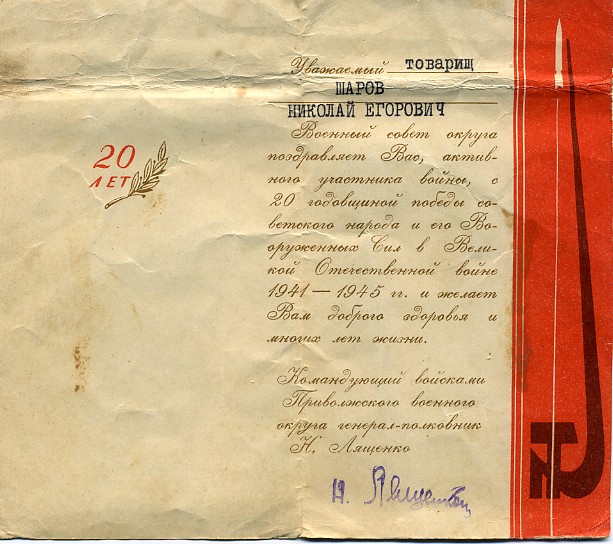 20
ЛЕТ
Уважаемый товарищ
ШАРОВ
НИКОЛАЙ ЕГОРОВИЧ
Военный совет округа
поздравляет Вас, актив-
ного участника войны, с
20 годовщиной победы со-
ветского народа и его Во-
оруженных Сил в Вели-
кой Отечественной войне
1941 — 1945 гг. и желает
Вам доброго здоровья и
многих лет жизни.
Командующий войсками
Приволжского военного
округа генерал-полковник
Н. Лященко
Н. Лященко